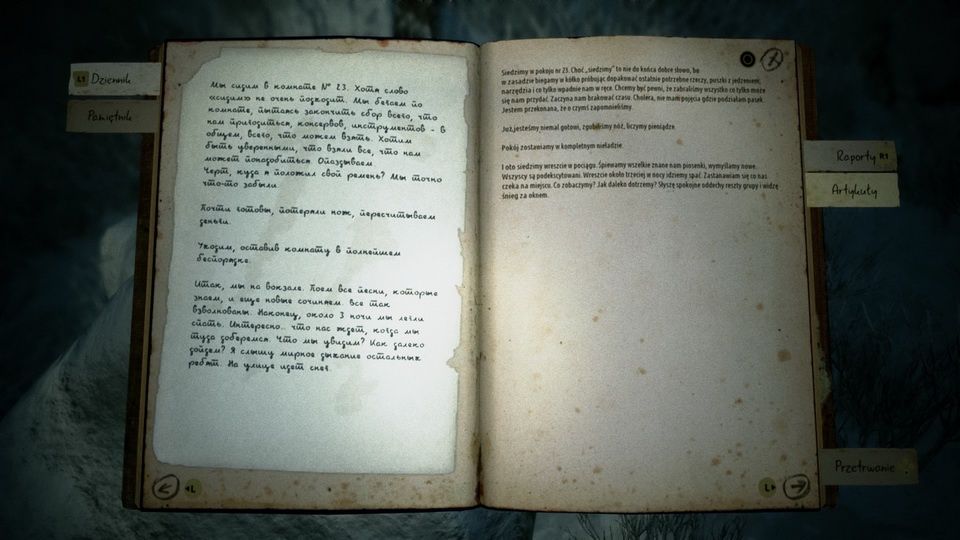 L1 Dziennik
Pamiętnik
Мы сидим в комнате № 23. Хотя слово
«сидим» не очень подходит. Мы бегаем по
комнате, пытаясь закончить сбор всего, что
нам пригодиться, консервов, инструментов - в
общем, всего, что можем взять. Хотим
быть уверенными, что взяли все, что нам
может понадобиться. Опаздываем.
Черт, куда я положил свой ремень? Мы точно
что-то забыли.
Почти готовы, потеряли нож, пересчитываем
деньги.
Уходим, оставив комнату в полнейшем
беспорядке.
Итак, мы на вокзале. Поем все песни, которые
знаем, и еще новые сочиняем. Все так
взволнованы. Наконец, около 3 ночи мы легли
спать. Интересно.. что нас ждет, когда мы
туда доберемся. Что мы увидим? Как далеко
дойдем? Я слышу мирное дыхание остальных
ребят. На улице идет снег.
L
Siedzimy w pokoju nr 23. Choć „siedzimy” to nie do końca dobre słowo, bo
w zasadzie biegamy w kółko próbując dopakować ostatnie potrzebne rzeczy, puszki z jedzeniem,
narzędzia i co tylko wpadnie nam w ręce. Chcemy być pewni, że zabraliśmy wszystko co tylko może
się nam przydać. Zaczyna nam brakować czasu. Cholera, nie mam pojęcia gdzie podziałam pasek.
Jestem przekonana, że o czymś zapomnieliśmy.
Już jesteśmy niemal gotowi, zgubiliśmy nóż, liczymy pieniądze.
Pokój zostawiamy w kompletnym nieładzie.
I oto siedzimy wreszcie w pociągu. Śpiewamy wszelkie znane nam piosenki, wymyślamy nowe.
Wszyscy są podekscytowani. Wreszcie około trzeciej w nocy idziemy spać. Zastanawiam się co nas
czeka na miejscu. Co zobaczymy? Jak daleko dotrzemy? Słyszę spokojne oddechy reszty grupy i widzę
śnieg za oknem.
Raporty R1
Artykuły
Przetrwanie
L